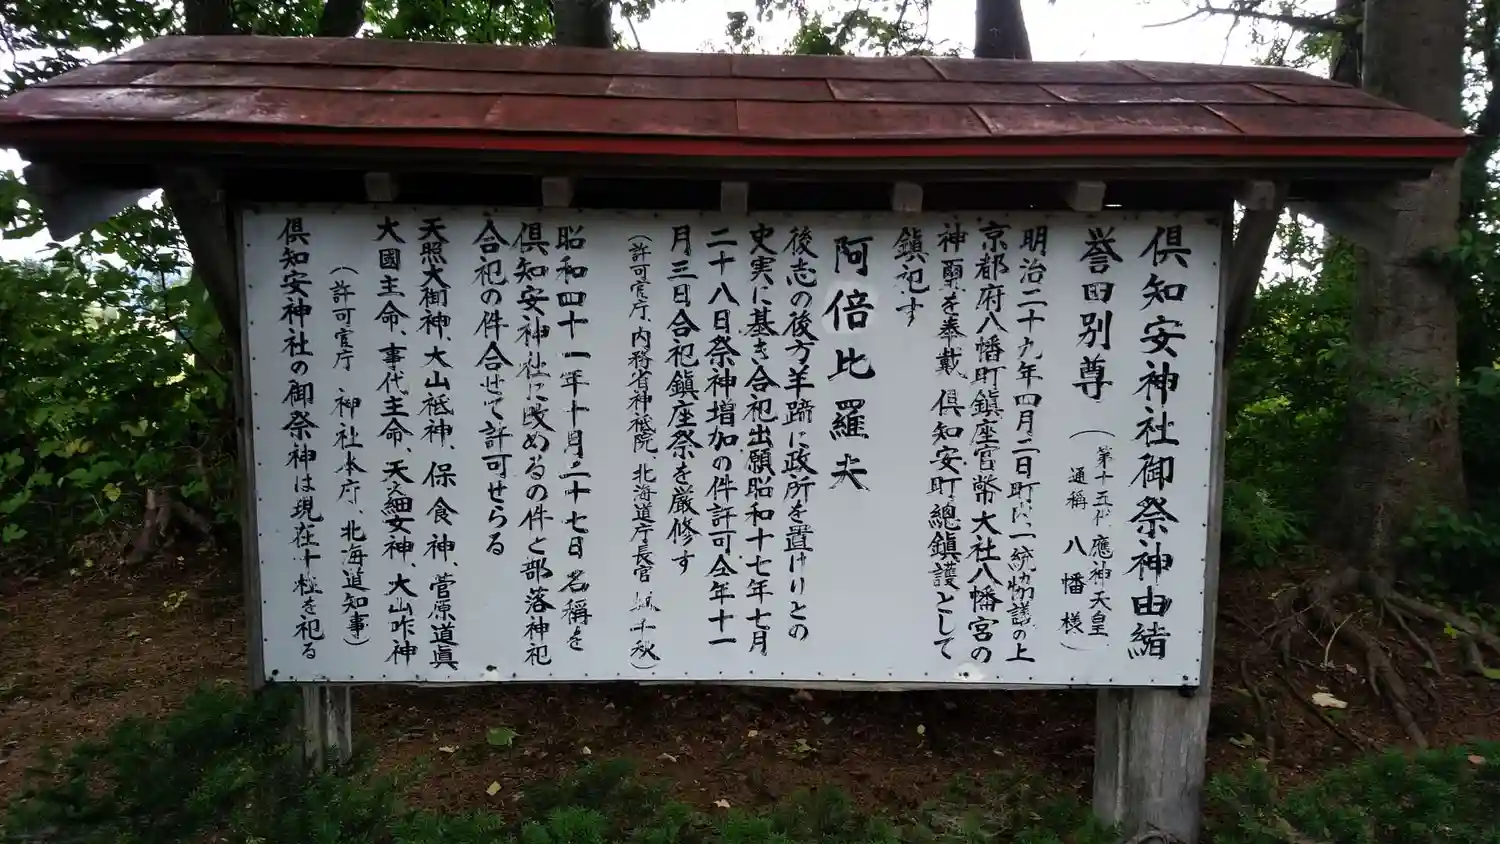 倶知安神社御祭神由緒
誉田別尊
(第十五代 應神天皇
通稱 八幡様)
明治二十九年四月二日町民一統協議の上
京都府八幡町鎮座官幣大社八幡宮の
神璽を奉戴 倶知安町總鎮護として
鎮祀す
阿倍比羅夫
後志の後方羊蹄に政所を置けりとの
史実に基き合祀出願昭和十七年七月
二十八日祭神増加の件許可仝年十一
月三日合祀鎮座祭を厳修す
(許可官庁、内務省神祗院 北海道庁長官 千秋)
昭和四十一年十月二十七日名稱を
倶知安神社に改めるの件と部落神祀
合祀の件合せて許可せらる
天照大御神、大山祗神、保食神、菅原道眞
大國主命、事代主命、天之細女神、大山咋神
(許可官庁 神社本庁、北海道知事)
倶知安神社の御祭神は現在十柱を祀る